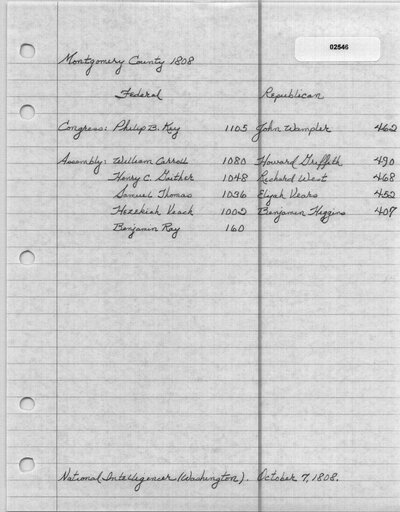 02546
Montgomery County 1808
Federal Republican
Congress: Philip B. Key 1105 John Wampler 462
Assembly: William Carroll 1080 Howard Griffith 490
Henry C. Gaither 1048 Richard West 468
Samuel Thomas 1036 Elijah Vears 452
Hezekiah Veach 1002 Benjamin Higgins 407
Benjamin Ray 160
National Intelligencer (Washington). October 7, 1808.